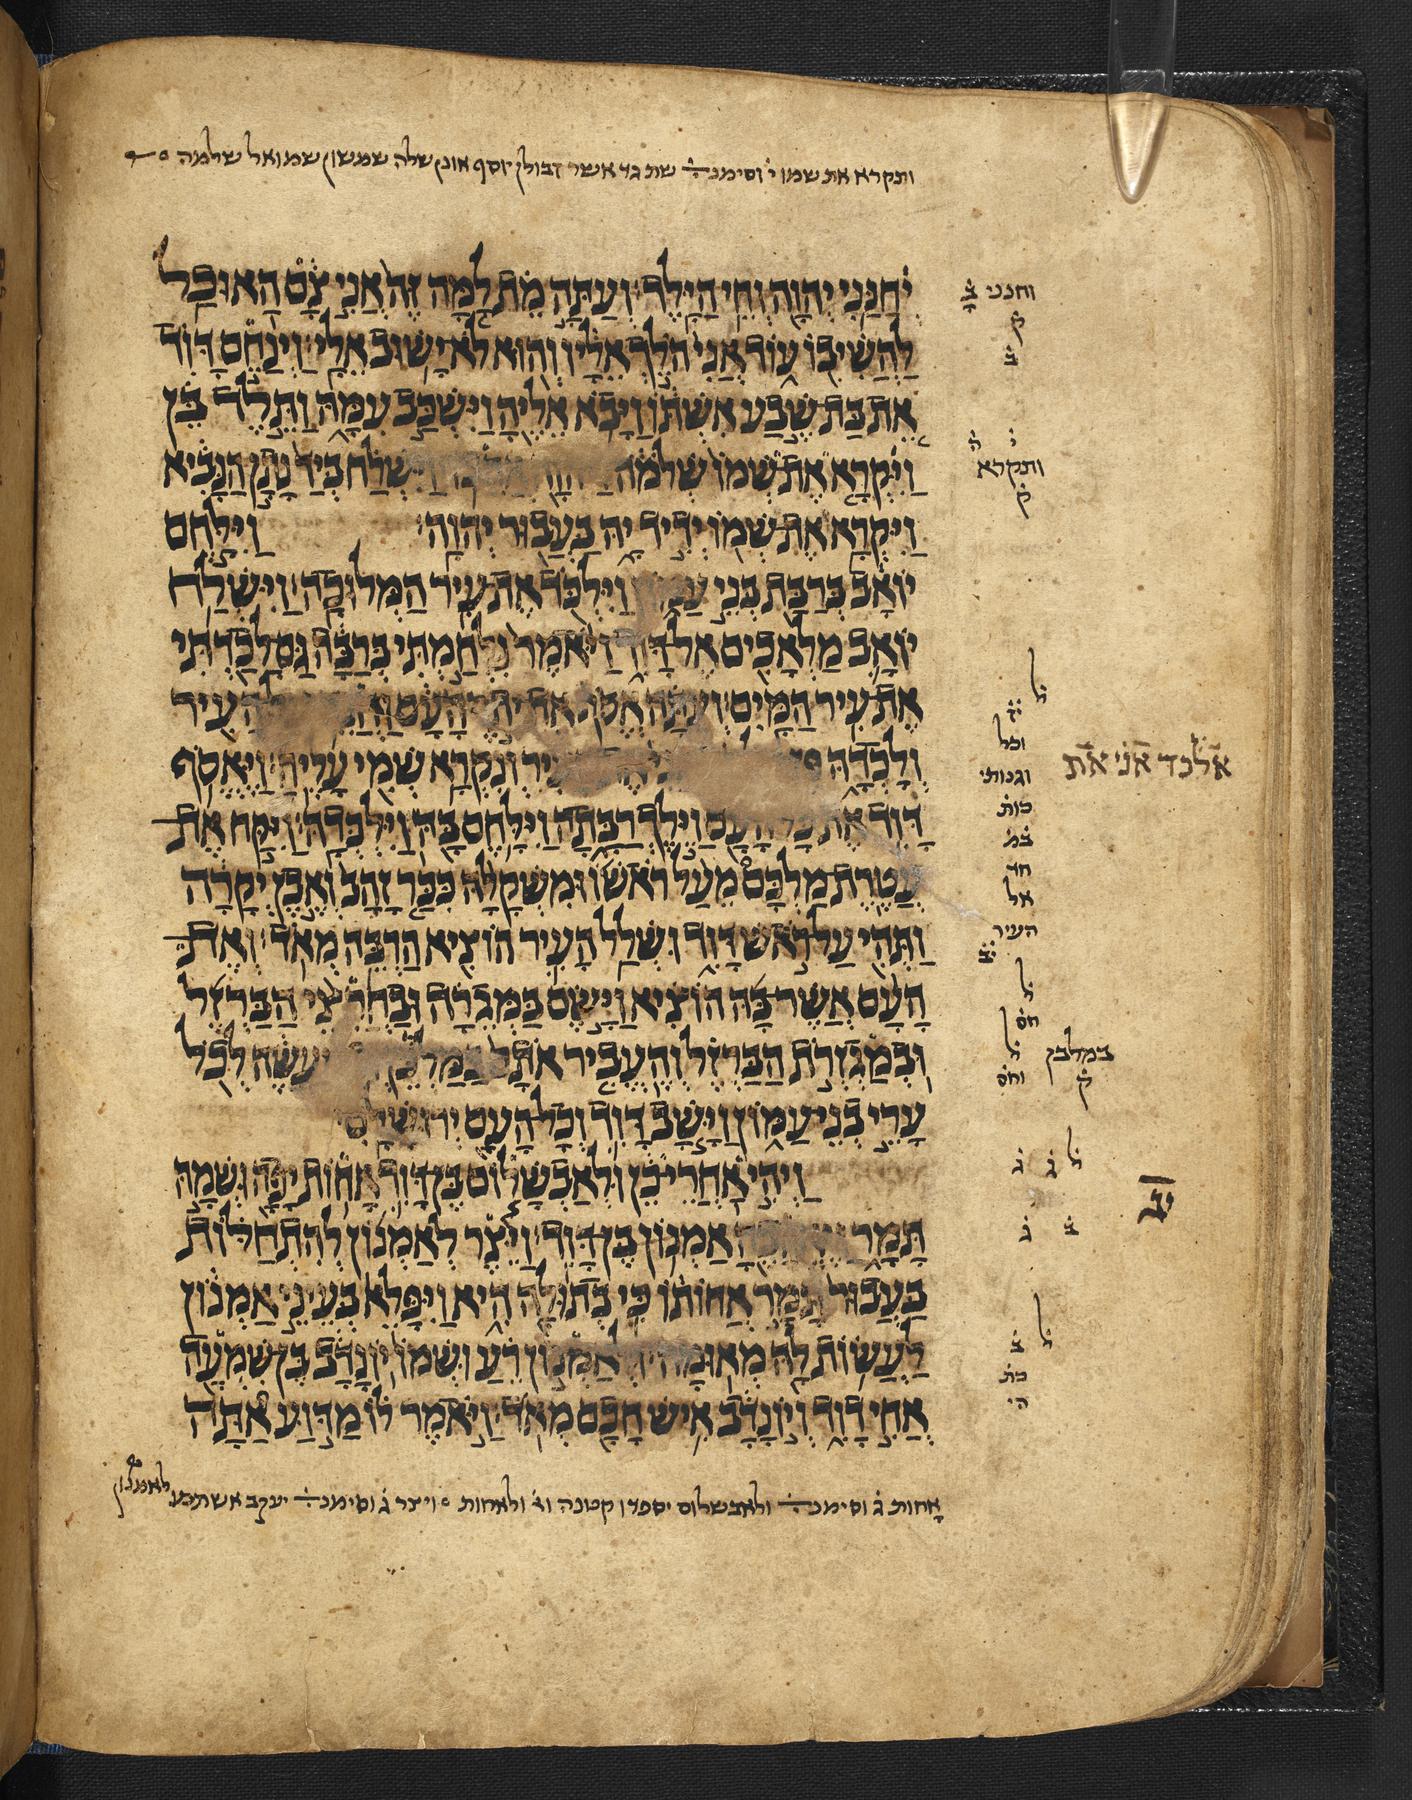 ותקרא את שמו י וסימנ שת גד אשר זבולן יוסף אונן שלה שמשון שמואל שלמה
יְחָנַּנִי יְהוָה וְחַי הַיָּלֶד׃ וְעַתָּה מֵת לָמָּה זֶּה אֲנִי צָם הַאוּכַל
לַהֲשִׁיבוֹ עוֹד אֲנִי הֹלֵךְ אֵלָיו וְהוּא לֹא יָשׁוּב אֵלָי׃ וַיְנַחֵם דָּוִד
אֵת בַּת שֶׁבַע אִשְׁתּוֹ וַיָּבֹא אֵלֶיהָ וַיִּשְׁכַּב עִמָּהּ וַתֵּלֶד בֵּן
וַיִּקְרָא אֶת שְׁמוֹ שְׁלֹמֹה וַיִּשְׁלַח בְּיַד נָתָן הַנָּבִיא
וַיִּקְרָא אֶת שְׁמוֹ יְדִיד יָהּ בַּעֲבוּר יְהוָה׃ וַיִּלָּחֶם
יוֹאָב בְּרַבַּת בְּנֵי וַיִּלְכֹּד אֶת עִיר הַמְּלוּכָה׃ וַיִּשְׁלַח
יוֹאָב מַלְאָכִים אֶל דָּוִד וַיֹּאמֶר נִלְחַמְתִּי בְרַבָּה גַּם לָכַדְתִּי
אֶת עִיר הַמָּיִם׃ וְעַתָּה אֱסֹף אֶת יֶתֶר הָעָם הָעִיר
וְלָכְדָהּ וְנִקְרָא שְׁמִי עָלֶיהָ׃ וַיֶּאֱסֹף
דָּוִד אֶת כָּל הָעָם וַיֵּלֶךְ רַבָּתָה וַיִּלָּחֶם בָּהּ וַיִּלְכְּדָהּ׃ וַיִּקַּח אֶת
עֲטֶרֶת מַלְכָּם מֵעַל רֹאשׁוֹ וּמִשְׁקָלָהּ כִּכַּר זָהָב וְאֶבֶן יְקָרָה
וַתְּהִי עַל רֹאשׁ דָּוִד וּשְׁלַל הָעִיר הוֹצִיא הַרְבֵּה מְאֹד׃ וְאֶת
הָעָם אֲשֶׁר בָּהּ הוֹצִיא וַיָּשֶׂם בַּמְּגֵרָה וּבַחֲרִצֵי הַבַּרְזֶל
וּבְמַגְזְרֹת הַבַּרְזֶל וְהֶעֱבִיר אֹתָם יַעֲשֶׂה לְכֹל
עָרֵי בְנֵי עַמּוֹן וַיָּשָׁב דָּוִד וְכָל הָעָם יְרוּשָׁלִָם׃
וַיְהִי אַחֲרֵי כֵן וּלְאַבְשָׁלוֹם בֶּן דָּוִד אָחוֹת יָפָה וּשְׁמָהּ
תָּמָר אַמְנוֹן בֶּן דָּוִד׃ וַיֵּצֶר לְאַמְנוֹן לְהִתְחַלּוֹת
בַּעֲבוּר תָּמָר אֲחֹותוֹ כִּי בְתוּלָה הִיא וַיִּפָּלֵא בְּעֵינֵי אַמְנוֹן
לַעֲשׂוֹת לָהּ מְאוּמָה׃ וּלְאַמְנוֹן רֵעַ וּשְׁמוֹ יוֹנָדָב בֶּן שִׁמְעָה
אֲחִי דָוִד וְיוֹנָדָב אִישׁ חָכָם מְאֹד׃ וַיֹּאמֶר לוֹ מַדּוּעַ אַתָּה
אָחות ג וסימנ ולאבשלום יספרו קטונה וג ולאחות ויצר ג וסימנ יעקב לאמנון
וחנני
ק
ב
ותקרא
ק
ל
וכל
כות
חד
אל
העיר
אלכד אני את
ל
חס
ל
במלבן
ק
וחס
ל ג ג
יב
ב ג
ל
ב
כת
הי